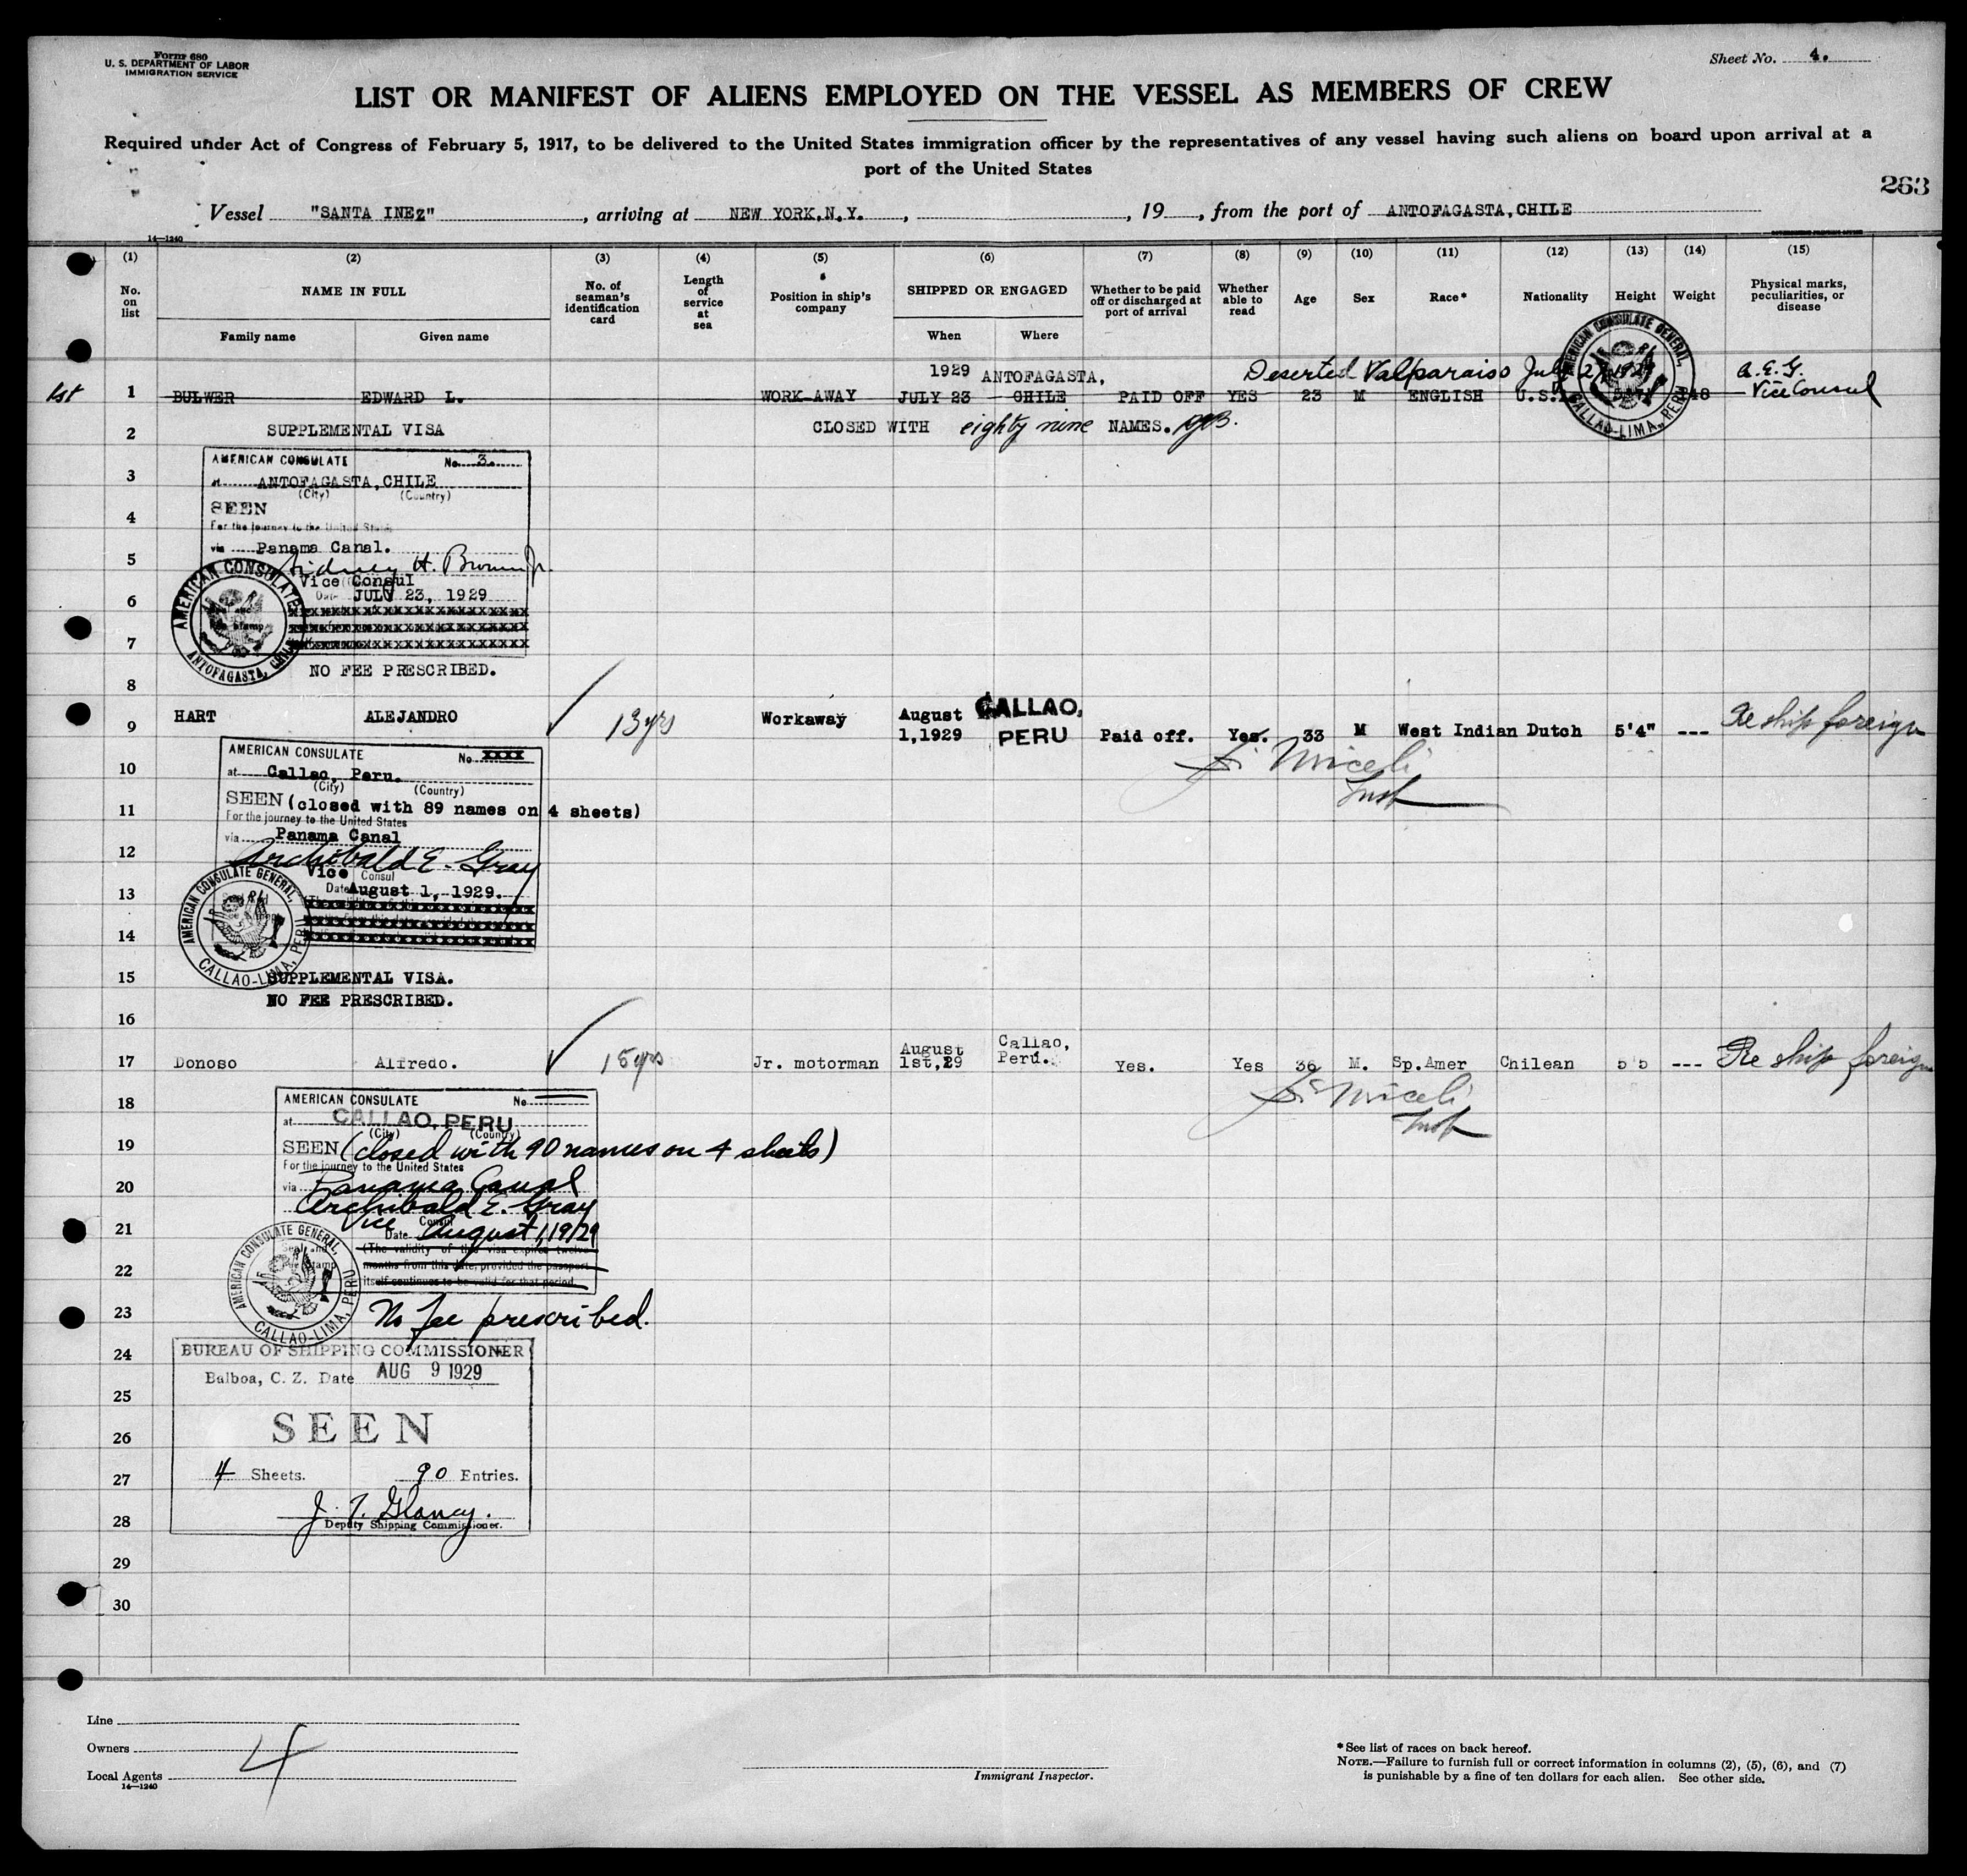 Form 680
U. S. DEPARTMENT OF LABOR
IMMIGRATION SERVICE
Sheet No. 4.
LIST OR MANIFEST OF ALIENS EMPLOYED ON THE VESSEL AS MEMBERS OF CREW
Required under Act of Congress of February 5, 1917, to be delivered to the United States immigration officer by the representatives of any vessel having such aliens on board upon arrival at a
port of the United States
263
Vessel "SANTA INEZ", arriving at NEW YORK,N.Y. , , 19 , from the port of ANTOFAGASTA,CHILE
14—1240
(1) (2) (3) (4) (5) (6) (7) (8) (9) (10) (11) (12) (13) (14) (15)
No. on list
NAME IN FULL
Family name Given name
No. of seaman's identification card
Length of service at sea
Position in ship's company
SHIPPED OR ENGAGED
When Where
Whether to be paid off or discharged at port of arrival
Whether able to read
Age
Sex
Race*
Nationality
Height
Weight
Physical marks, peculiarities, or disease
AMERICAN CONSULATE GENERAL, CALLAO-LIMA, PERU
1929 ANTOFAGASTA, Deserted Valparaiso July 1929 A. E. G.
1st 1 BULWER EDWARD L. WORK-AWAY JULY 23 CHILE PAID OFF YES 23 M ENGLISH U.S. Vice Consul
2 SUPPLEMENTAL VISA CLOSED WITH eighty nine NAMES.
AMERICAN CONSULATE No. 3.
3 at ANTOFAGASTA,CHILE
(City) (Country)
4 SEEN
For the journey to the United States
via Panama Canal.
5 Sidney H. Brown Jr.
Vice Consul
6 Date JULY 23, 1929
AMERICAN CONSULATE ANTOFAGASTA, CHILE
7
NO FEE PRESCRIBED.
8
9 HART ALEJANDRO 13 yrs Workaway August 1,1929 CALLAO, PERU Paid off. Yes. 33 M West Indian Dutch 5'4" --- Re ship foreign
Miceli
Insp
AMERICAN CONSULATE No. xxxx
10 at Callao, Peru.
(City) (Country)
11 SEEN (closed with 89 names on 4 sheets)
For the journey to the United States
via Panama Canal
12 Archibald E. Gray
Vice Consul
13 Date August 1, 1929.
AMERICAN CONSULATE GENERAL, CALLAO-LIMA, PERU
14
15 SUPPLEMENTAL VISA.
NO FEE PRESCRIBED.
16
17 Donoso Alfredo. 15 yrs Jr. motorman August 1st,29 Callao, Peru. Yes. Yes 36 M. Sp.Amer Chilean 5 5 --- Re ship foreign
Miceli
Insp
18 AMERICAN CONSULATE No.
at CALLAO, PERU
(City) (Country)
19 SEEN (closed with 90 names on 4 sheets)
For the journey to the United States
20 via Panama Canal
Archibald E. Gray
Vice Consul
21 Date August 1, 1929
(The validity of this visa expires twelve
22 months from this date, provided the passport
itself continues to be valid for that period
AMERICAN CONSULATE GENERAL, CALLAO-LIMA, PERU
23 No fee prescribed.
24 BUREAU OF SHIPPING COMMISSIONER
Balboa, C. Z. Date AUG 9 1929
25
26 SEEN
27 4 Sheets. 90 Entries.
J. T. Glancy.
28 Deputy Shipping Commissioner.
29
30
Line
Owners
Local Agents
14—1240
4
Immigrant Inspector.
*See list of races on back hereof.
NOTE.—Failure to furnish full or correct information in columns (2), (5), (6), and (7)
is punishable by a fine of ten dollars for each alien. See other side.